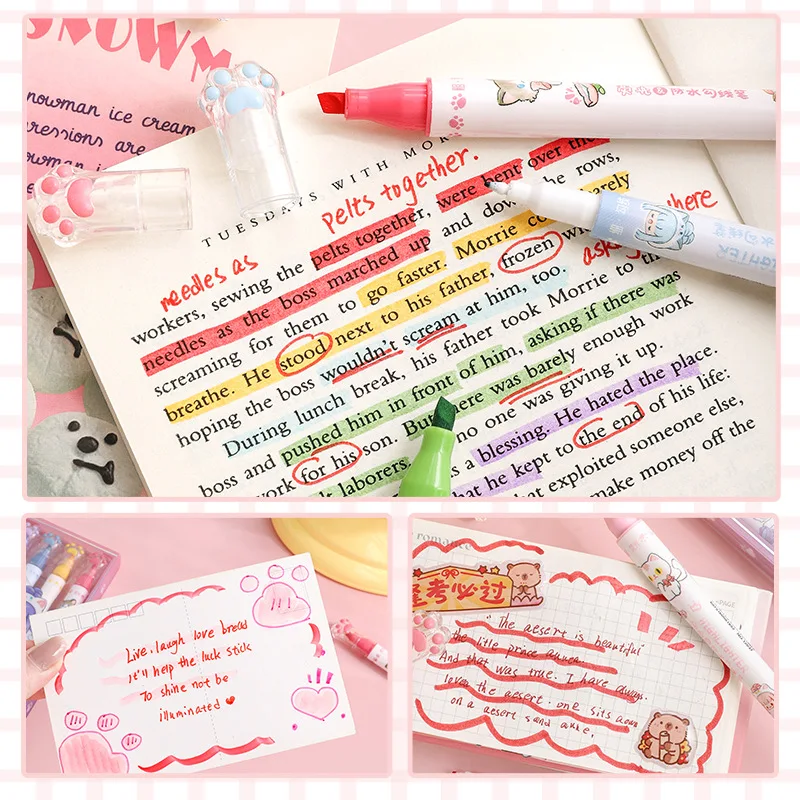 SNOWM
nowman ice cream
ressions are
owman i
TUESDAYS WITH MOR
pelts together.
needles as
here
workers, sewing the pelts together, were bent over the
needles as the boss marched up and down the rows,
screaming for them to go faster. Morrie could barely
breathe. He stood next to his father, frozen wi
hoping the boss wouldn't scream at him, too.
During lunch break, his father took Morrie to the
boss and pushed him in front of him, asking if there was
work for his son. But there was barely enough work
t laborers, no one was giving it up.
s a blessing. He hated the place.
hat he kept to the end of his life:
that exploited someone else,
make money off the
Live, laugh love bread
It'll help the luck stick
To shine not be
illuminated
romance
PAGE
考必过
"The desert is beautiful
the little prince
And that was true. I have always
loved the desert. one sits
on a desert sand